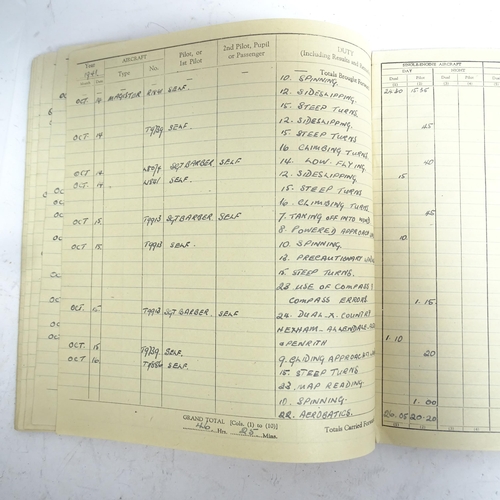 Year AIRCRAFT Pilot, or 2nd Pilot, Pupil DUTY
1941 Type No. 1st Pilot or Passenger (Including Results and
SINGLE-ENGINE AIRCRAFT
DAY NIGHT
Dual Pilot Dual Pilot
(1) (2) (3) (4)
Totals Brought Forward
24.20 15.55
10. SPINNING.
OCT 14 MAGISTER SELF. 12. SIDESLIPPING.
15. STEEP TURNS
12. SIDESLIPPING.
OCT 14 SELF. 15. STEEP TURNS .45
16. CLIMBING TURNS
OCT 14 SGT BARBER. SELF 14. LOW FLYING. .40
OCT 14 SELF. 12. SIDESLIPPING. .15
15. STEEP TURNS
16. CLIMBING TURNS
OCT 15 T9913 SGT BARBER SELF 7. TAKING OFF INTO WIND .45
8. POWERED APPROACH
OCT 15 T9913 SELF. 10. SPINNING. .10
13. PRECAUTIONARY
15. STEEP TURNS.
23 USE OF COMPASS
COMPASS ERRORS 1.15
OCT. 15 T9913 SGT BARBER. SELF 24. DUAL X. COUNTRY
HEXHAM. ALLENDALE.
& PENRITH 1.10
OCT. 15 SELF. 9. GLIDING APPROACH .20
OCT 16 SELF. 15. STEEP TURNS
23. MAP READING.
10. SPINNING. 1.00
22. AEROBATICS.
GRAND TOTAL [Cols. (1) to (10)]
46 Hrs. 25 Mins.
Totals Carried Forward
26.05 20.20